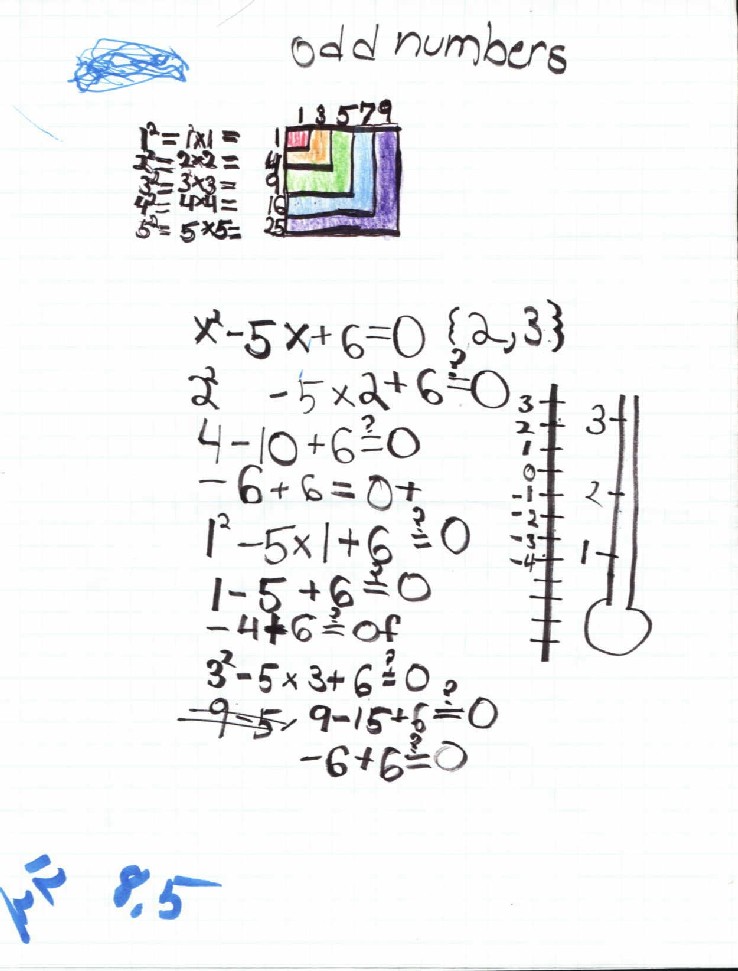 odd numbers
1 3 5 7 9
1² = 1x1 = 1
2² = 2x2 = 4
3² = 3x3 = 9
4² = 4x4 = 16
5² = 5x5= 25
x²-5x+6=0 {2,3}
2² -5x2+6≟0
4-10+6≟0
-6+6=0+
1²-5x1+6≟0
1-5+6≟0
-4+6≟0f
3²-5x3+6≟0
-9-5, 9-15+6≟0
-6+6≟0
3
2
1
0
-1
-2
-3
-4
3
2
1
8,5